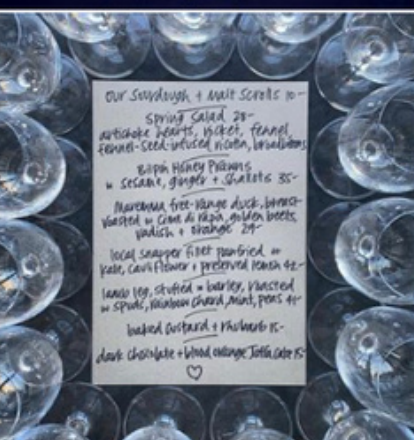 our Sourdough + malt Scrolls 10-
Spring Salad 28-
artichoke hearts, rocket, fennel,
fennel-seed-infused ricotta, broadbeans
Bilpin Honey Prawns
w sesame, ginger + shallots 35-
Maremma free-range duck, breast
roasted w cime di rapa, golden beets,
radish + orange 29-
local snapper fillet panfried w
kale, cauliflower + preserved lemon 42-
lamb leg, stuffed w barley, roasted
w spuds, rainbow chard, mint, peas 41-
baked custard + rhubarb 15-
dark chocolate + blood orange Jaffa Cake 15-